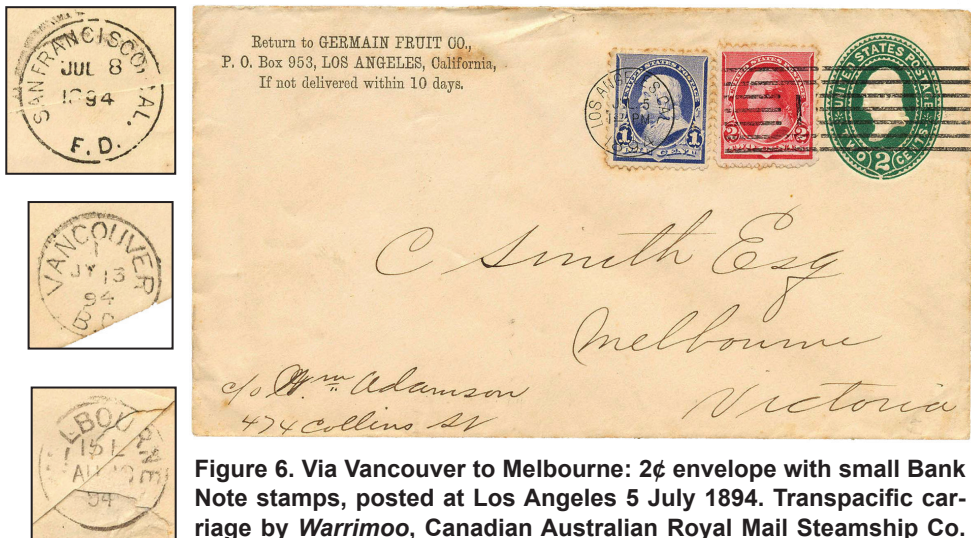 SAN FRANCISCO, CAL.
JUL 8
1894
F. D.
VANCOUVER
1
JY 13
94
B.C
LBOURNE
AU
94
Return to GERMAIN FRUIT CO.,
P. O. Box 953, LOS ANGELES, California,
If not delivered within 10 days.
LOS ANGELES, CAL
5
PM
UNITED STATES POSTAGE
TWO 2 CENTS
1 1
2 2
C Smith Esq
Melbourne
Victoria
c/o Wm Adamson
474 Collins St
Figure 6. Via Vancouver to Melbourne: 2¢ envelope with small Bank
Note stamps, posted at Los Angeles 5 July 1894. Transpacific car-
riage by Warrimoo, Canadian Australian Royal Mail Steamship Co.